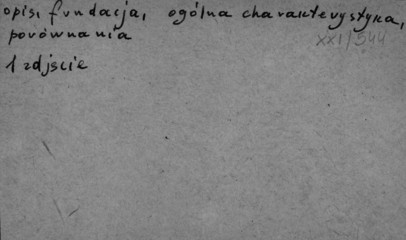 opis, fundacja, ogólna charakterystyka,
porównania
XXI/544
1 zdjście